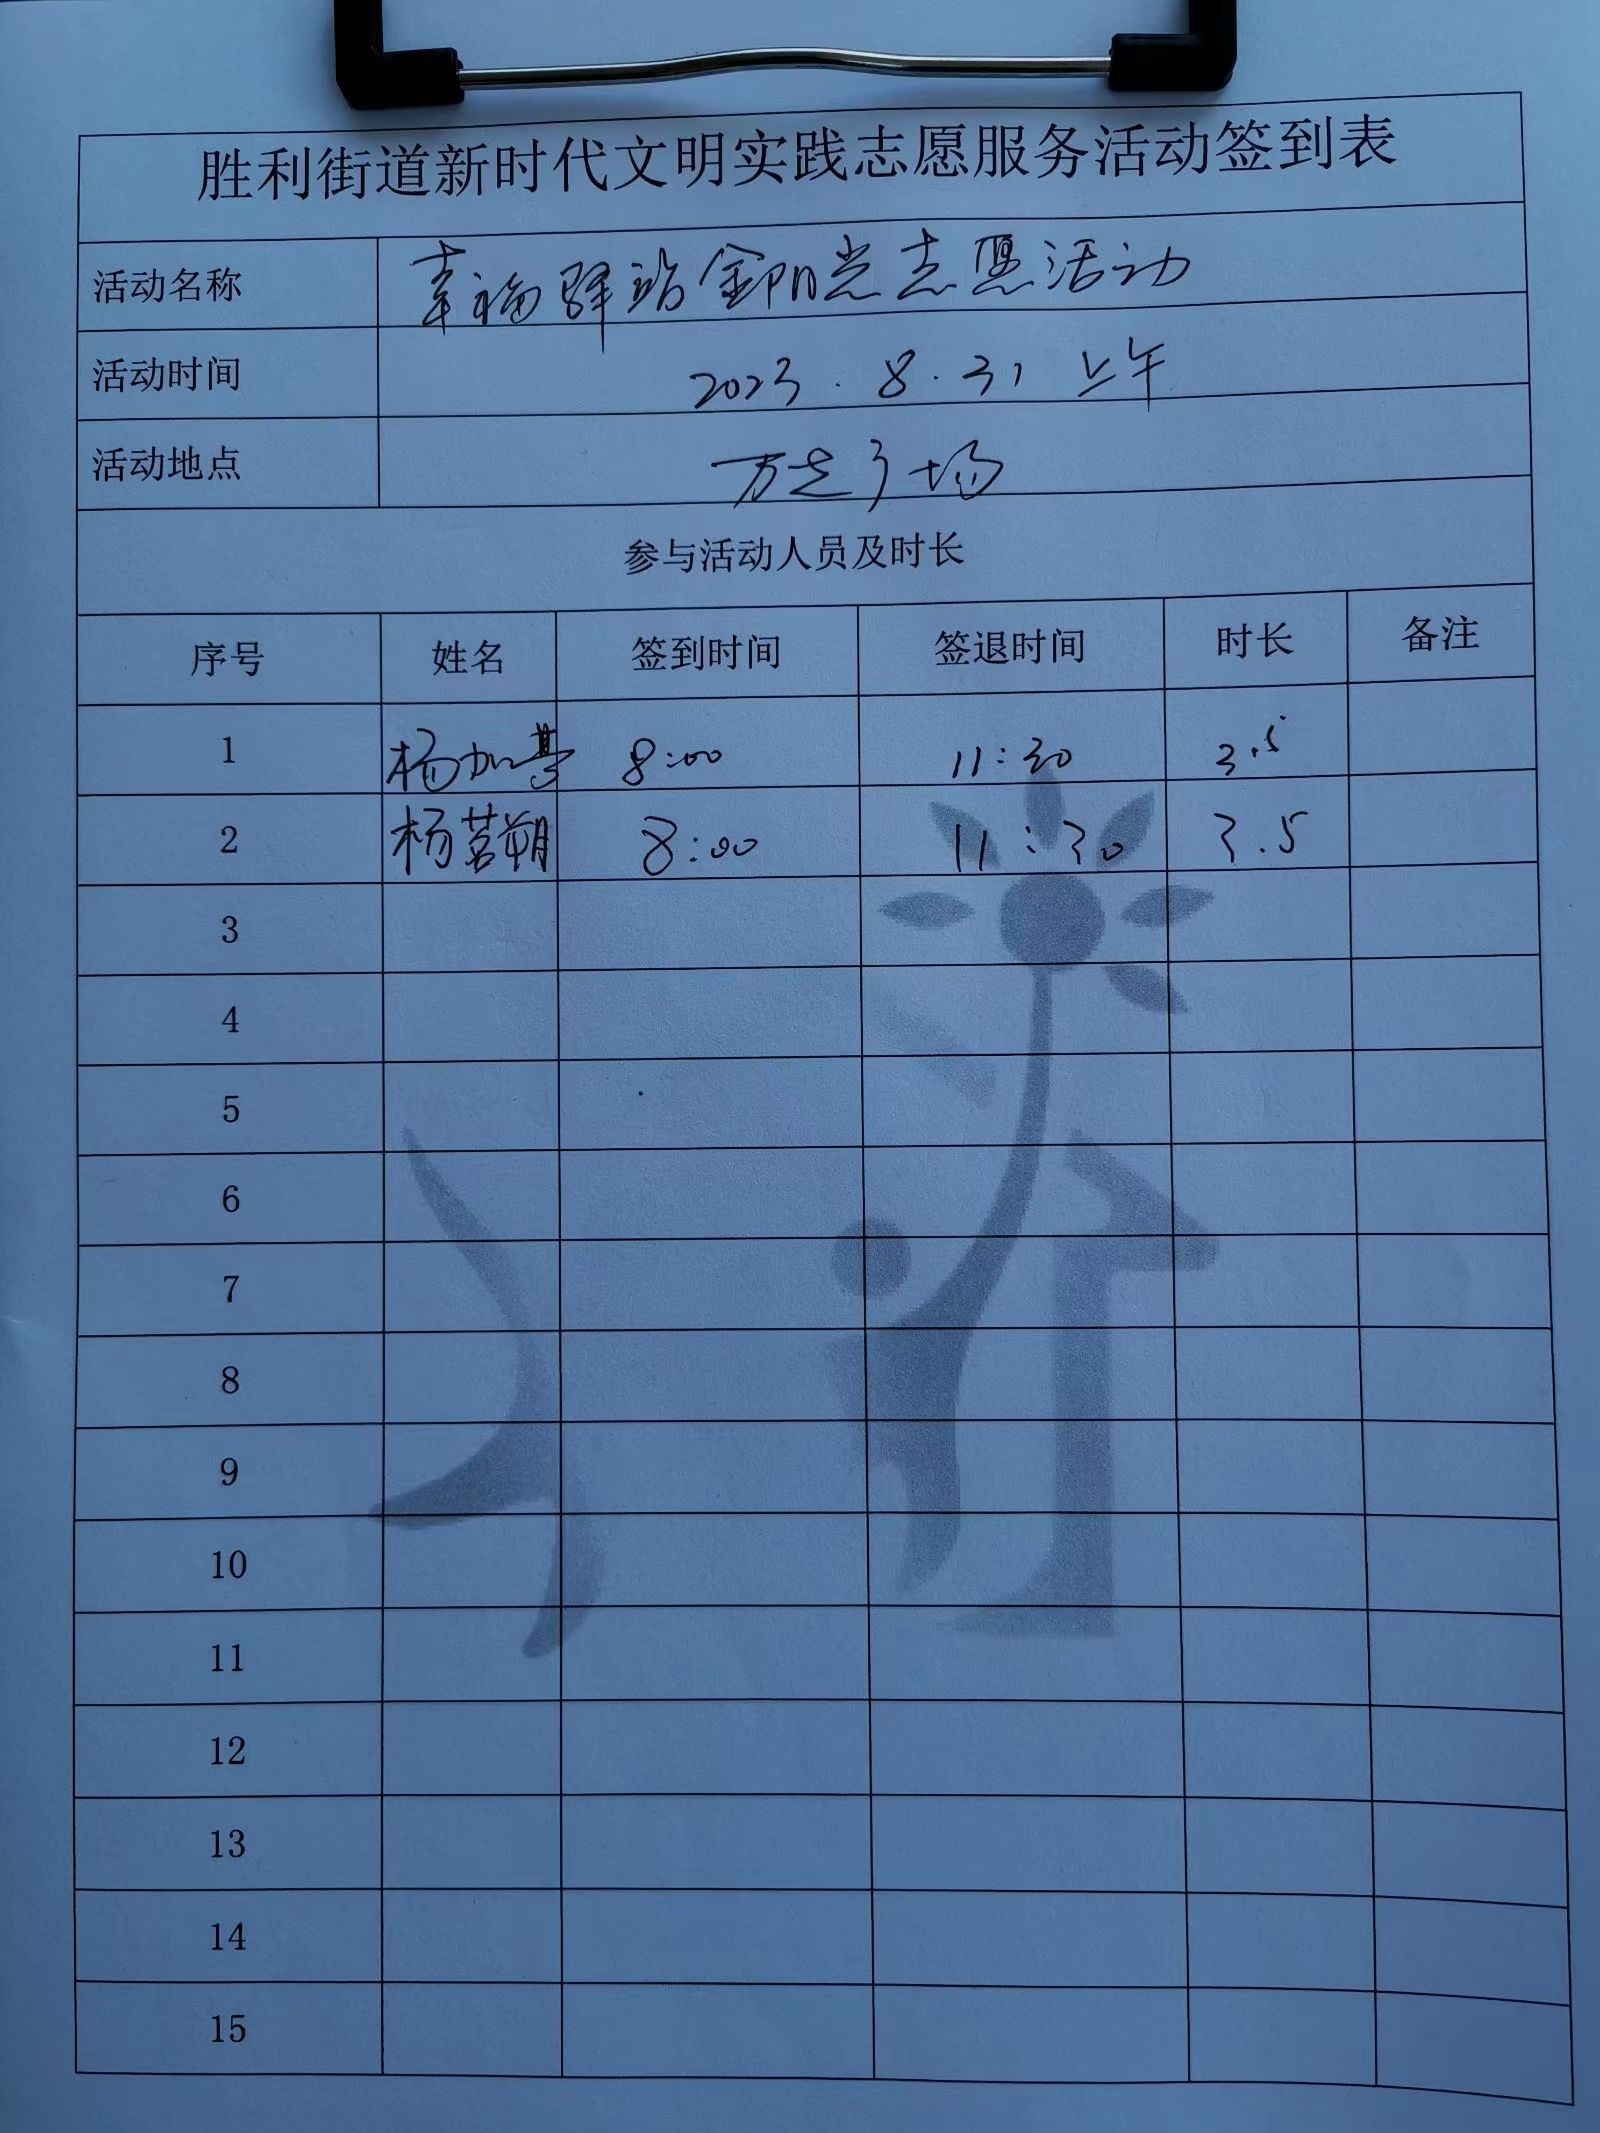 胜利街道新时代文明实践志愿服务活动签到表
活动名称 幸福驿站金阳光志愿活动
活动时间 2023.8.31 上午
活动地点 万达广场
参与活动人员及时长
序号 姓名 签到时间 签退时间 时长 备注
1 杨加 8:00 11:30 3.5
2 杨茗朔 8:00 11:30 3.5
3
4
5
6
7
8
9
10
11
12
13
14
15